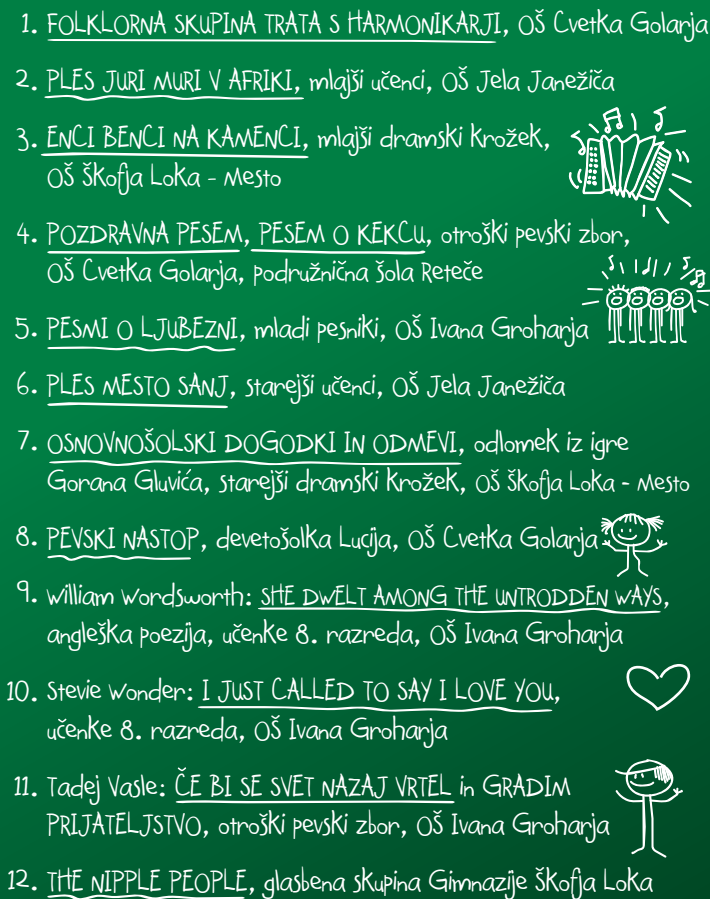 1. FOLKLORNA SKUPINA TRATA S HARMONIKARJI, OŠ Cvetka Golarja
2. PLES JURI MURI V AFRIKI, mlajši učenci, OŠ Jela Janežiča
3. ENCI BENCI NA KAMENCI, mlajši dramski krožek,
OŠ Škofja Loka - Mesto
4. POZDRAVNA PESEM, PESEM O KEKCU, otroški pevski zbor,
OŠ Cvetka Golarja, podružnična šola Reteče
5. PESMI O LJUBEZNI, mladi pesniki, OŠ Ivana Groharja
6. PLES MESTO SANJ, starejši učenci, OŠ Jela Janežiča
7. OSNOVNOŠOLSKI DOGODKI IN ODMEVI, odlomek iz igre
Gorana Gluvića, starejši dramski krožek, OŠ Škofja Loka - Mesto
8. PEVSKI NASTOP, devetošolka Lucija, OŠ Cvetka Golarja
9. William Wordsworth: SHE DWELT AMONG THE UNTRODDEN WAYS,
angleška poezija, učenke 8. razreda, OŠ Ivana Groharja
10. Stevie Wonder: I JUST CALLED TO SAY I LOVE YOU,
učenke 8. razreda, OŠ Ivana Groharja
11. Tadej Vasle: ČE BI SE SVET NAZAJ VRTEL in GRADIM
PRIJATELJSTVO, otroški pevski zbor, OŠ Ivana Groharja
12. THE NIPPLE PEOPLE, glasbena skupina Gimnazije Škofja Loka